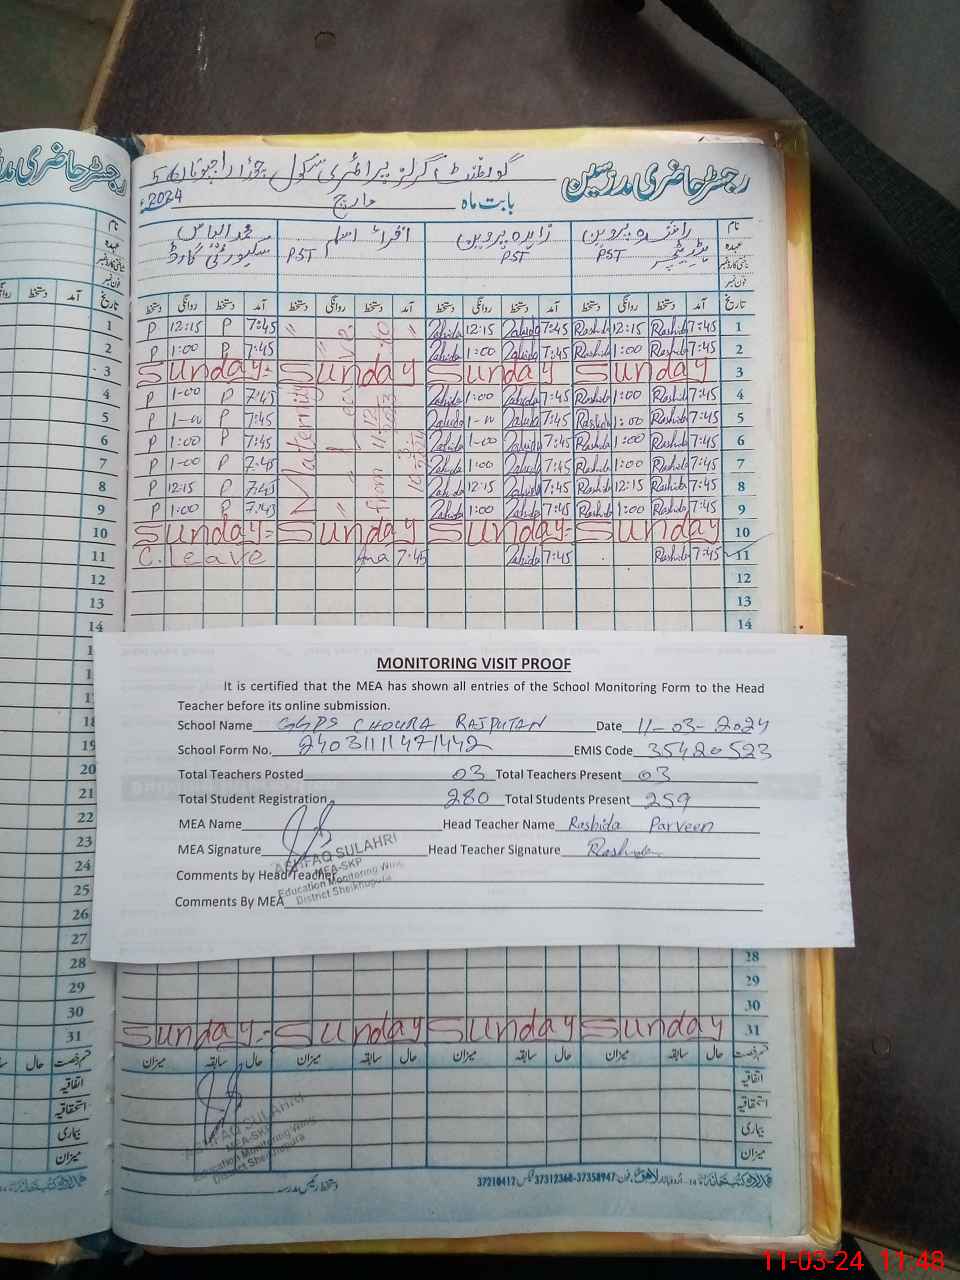 رجسٹر حاضری مدرسین
گورنمنٹ گرلز پرائمری سکول چوڑا راجپوتاں
بابت ماہ مارچ 2024
نام راشدہ پروین زاہدہ پروین اقراء اسلم محمد الیاس
عہدہ PST PST PST سکیورٹی گارڈ
تاریخ آمد دستخط روانگی دستخط آمد دستخط روانگی دستخط آمد دستخط روانگی دستخط آمد دستخط روانگی دستخط
P 12:15 P 7:45 Zahida 12:15 Zahida 7:45 Rashida 12:15 Rashida 7:45 1
P 1:00 P 7:45 Zahida 1:00 Zahida 7:45 Rashida 1:00 Rashida 7:45 2
Sunday Sunday Sunday Sunday 3
P 1-00 P 7:45 Zahida 1:00 Zahida 7:45 Rashida 1:00 Rashida 7:45 4
P 7:45 Zahida Zahida 7:45 Rashida 1:00 Rashida 7:45 5
P 1:00 P 7:45 Zahida 1-00 Zahida 7:45 Rashida 1:00 Rashida 7:45 6
P 1-00 P 7:45 Zahida 1:00 Zahida 7:45 Rashida 1:00 Rashida 7:45 7
P 12:15 P 7:45 Zahida 12:15 Zahida 7:45 Rashida 12:15 Rashida 7:45 8
P 1:00 P 7:45 Zahida 1:00 Zahida 7:45 Rashida 1:00 Rashida 7:45 9
Maternity leave from
Sunday Sunday Sunday Sunday 10
C. leave 7:45 Zahida 7:45 Rashida 7:45 11
12
13
14
MONITORING VISIT PROOF
It is certified that the MEA has shown all entries of the School Monitoring Form to the Head
Teacher before its online submission.
School Name GGPS CHOURA RAJPUTAN Date 11-03-2024
School Form No. 24031111471442 EMIS Code 35420523
Total Teachers Posted 03 Total Teachers Present 03
Total Student Registration 280 Total Students Present 259
MEA Name Head Teacher Name Rashida Parveen
MEA Signature Head Teacher Signature Rashida
ASHFAQ SULAHRI
MEA-SKP
Education Monitoring Wing
District Sheikhupura
Comments by Head Teacher
Comments By MEA
28
29
30
Sunday Sunday Sunday Sunday 31
قسم رخصت حال سابقہ میزان حال سابقہ میزان حال سابقہ میزان حال سابقہ میزان
اتفاقیہ
استحقاقیہ
بیماری
میزان
ASHFAQ SULAHRI
MEA-SKP
Education Monitoring Wing
District Sheikhupura
دستخط رئیس مدرسہ
37312368-37358947 فیکس 37210412
رجسٹر حاضری
نام
عہدہ
تاریخ آمد دستخط روانگی
1
2
3
4
5
6
7
8
9
10
11
12
13
14
19
20
21
22
23
24
25
26
27
28
29
30
31
قسم رخصت حال
اتفاقیہ
استحقاقیہ
بیماری
میزان
11-03-24 11:48